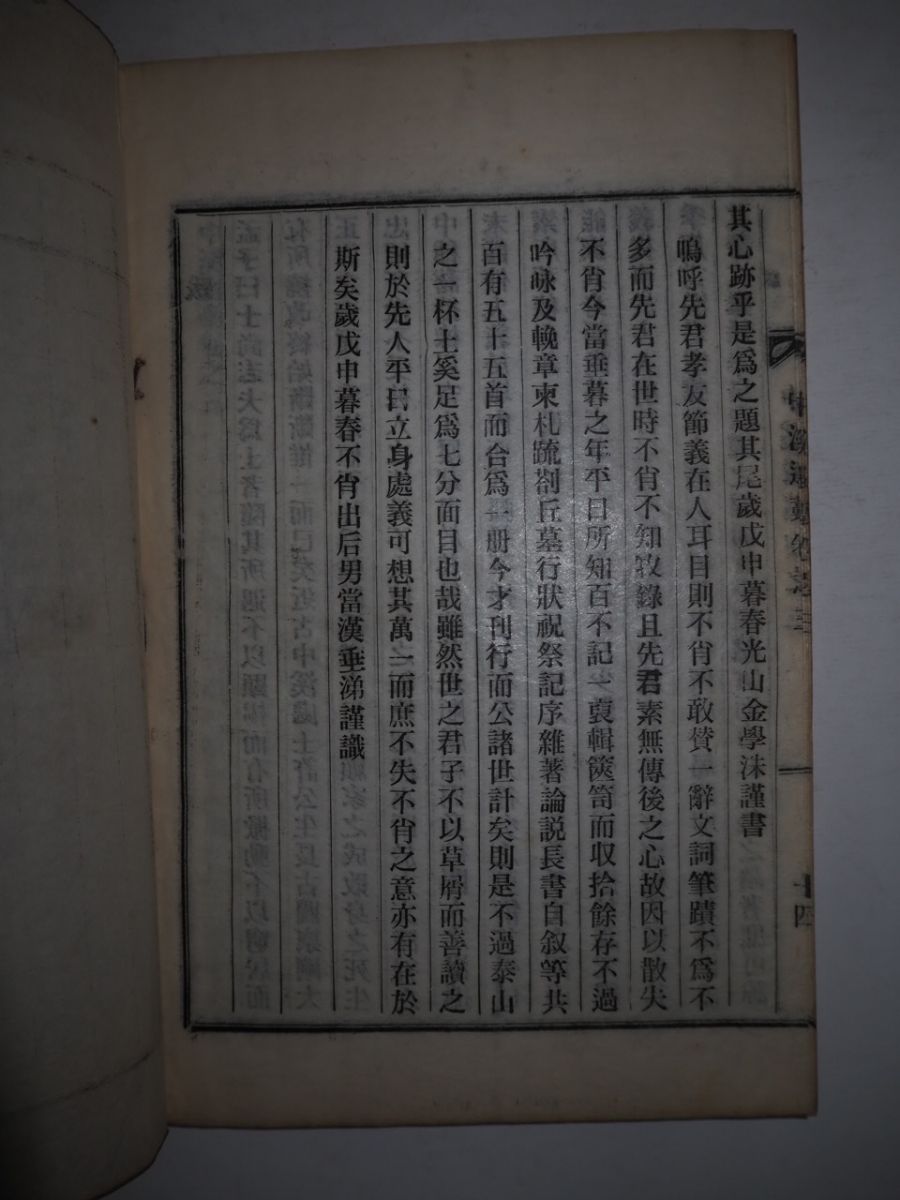 其心跡乎是爲之題其尾歲戊申暮春光山金學洙謹書
嗚呼先君孝友節義在人耳目則不肖不敢贊一辭文詞筆蹟不爲不
多而先君在世時不肖不知收錄且先君素無傳後之心故因以散失
不肖今當垂暮之年平日所知百不記一裒輯篋笥而収拾餘存不過
吟咏及輓章柬札䟽劄丘墓行狀祝祭記序雜著論説長書自叙等共
百有五十五首而合爲一册今才刊行而公諸世計矣則是不過泰山
之一杯土奚足爲七分面目也哉雖然世之君子不以草屑而善讀之
則於先人平日立身處義可想其萬一而庶不失不肖之意亦有在於
斯矣歲戊申暮春不肖出后男當漢垂涕謹識
中溪遺藁卷之三
十四